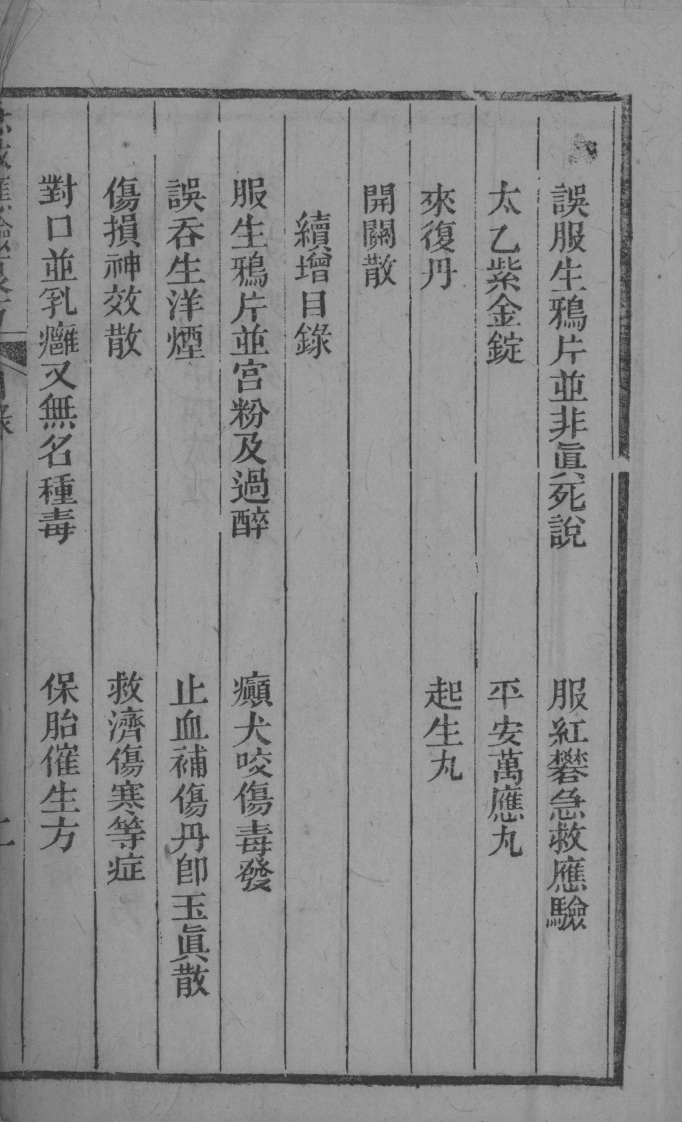 誤服生鴉片並非眞死說　服紅礬急救應驗
太乙紫金錠　平安萬應丸
來復丹　起生丸
開關散
續增目錄
服生鴉片並宮粉及過醉　癲犬咬傷毒發
誤吞生洋煙　止血補傷丹卽玉眞散
傷損神效散　救濟傷寒等症
對口並乳癰又無名種毒　保胎催生方